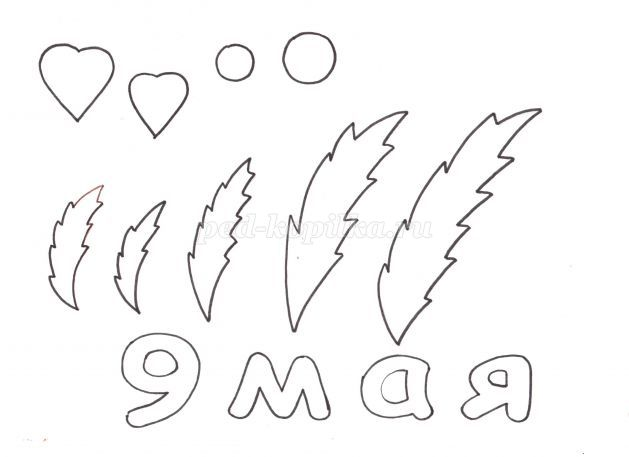 ped-kopilka.ru
9 мая